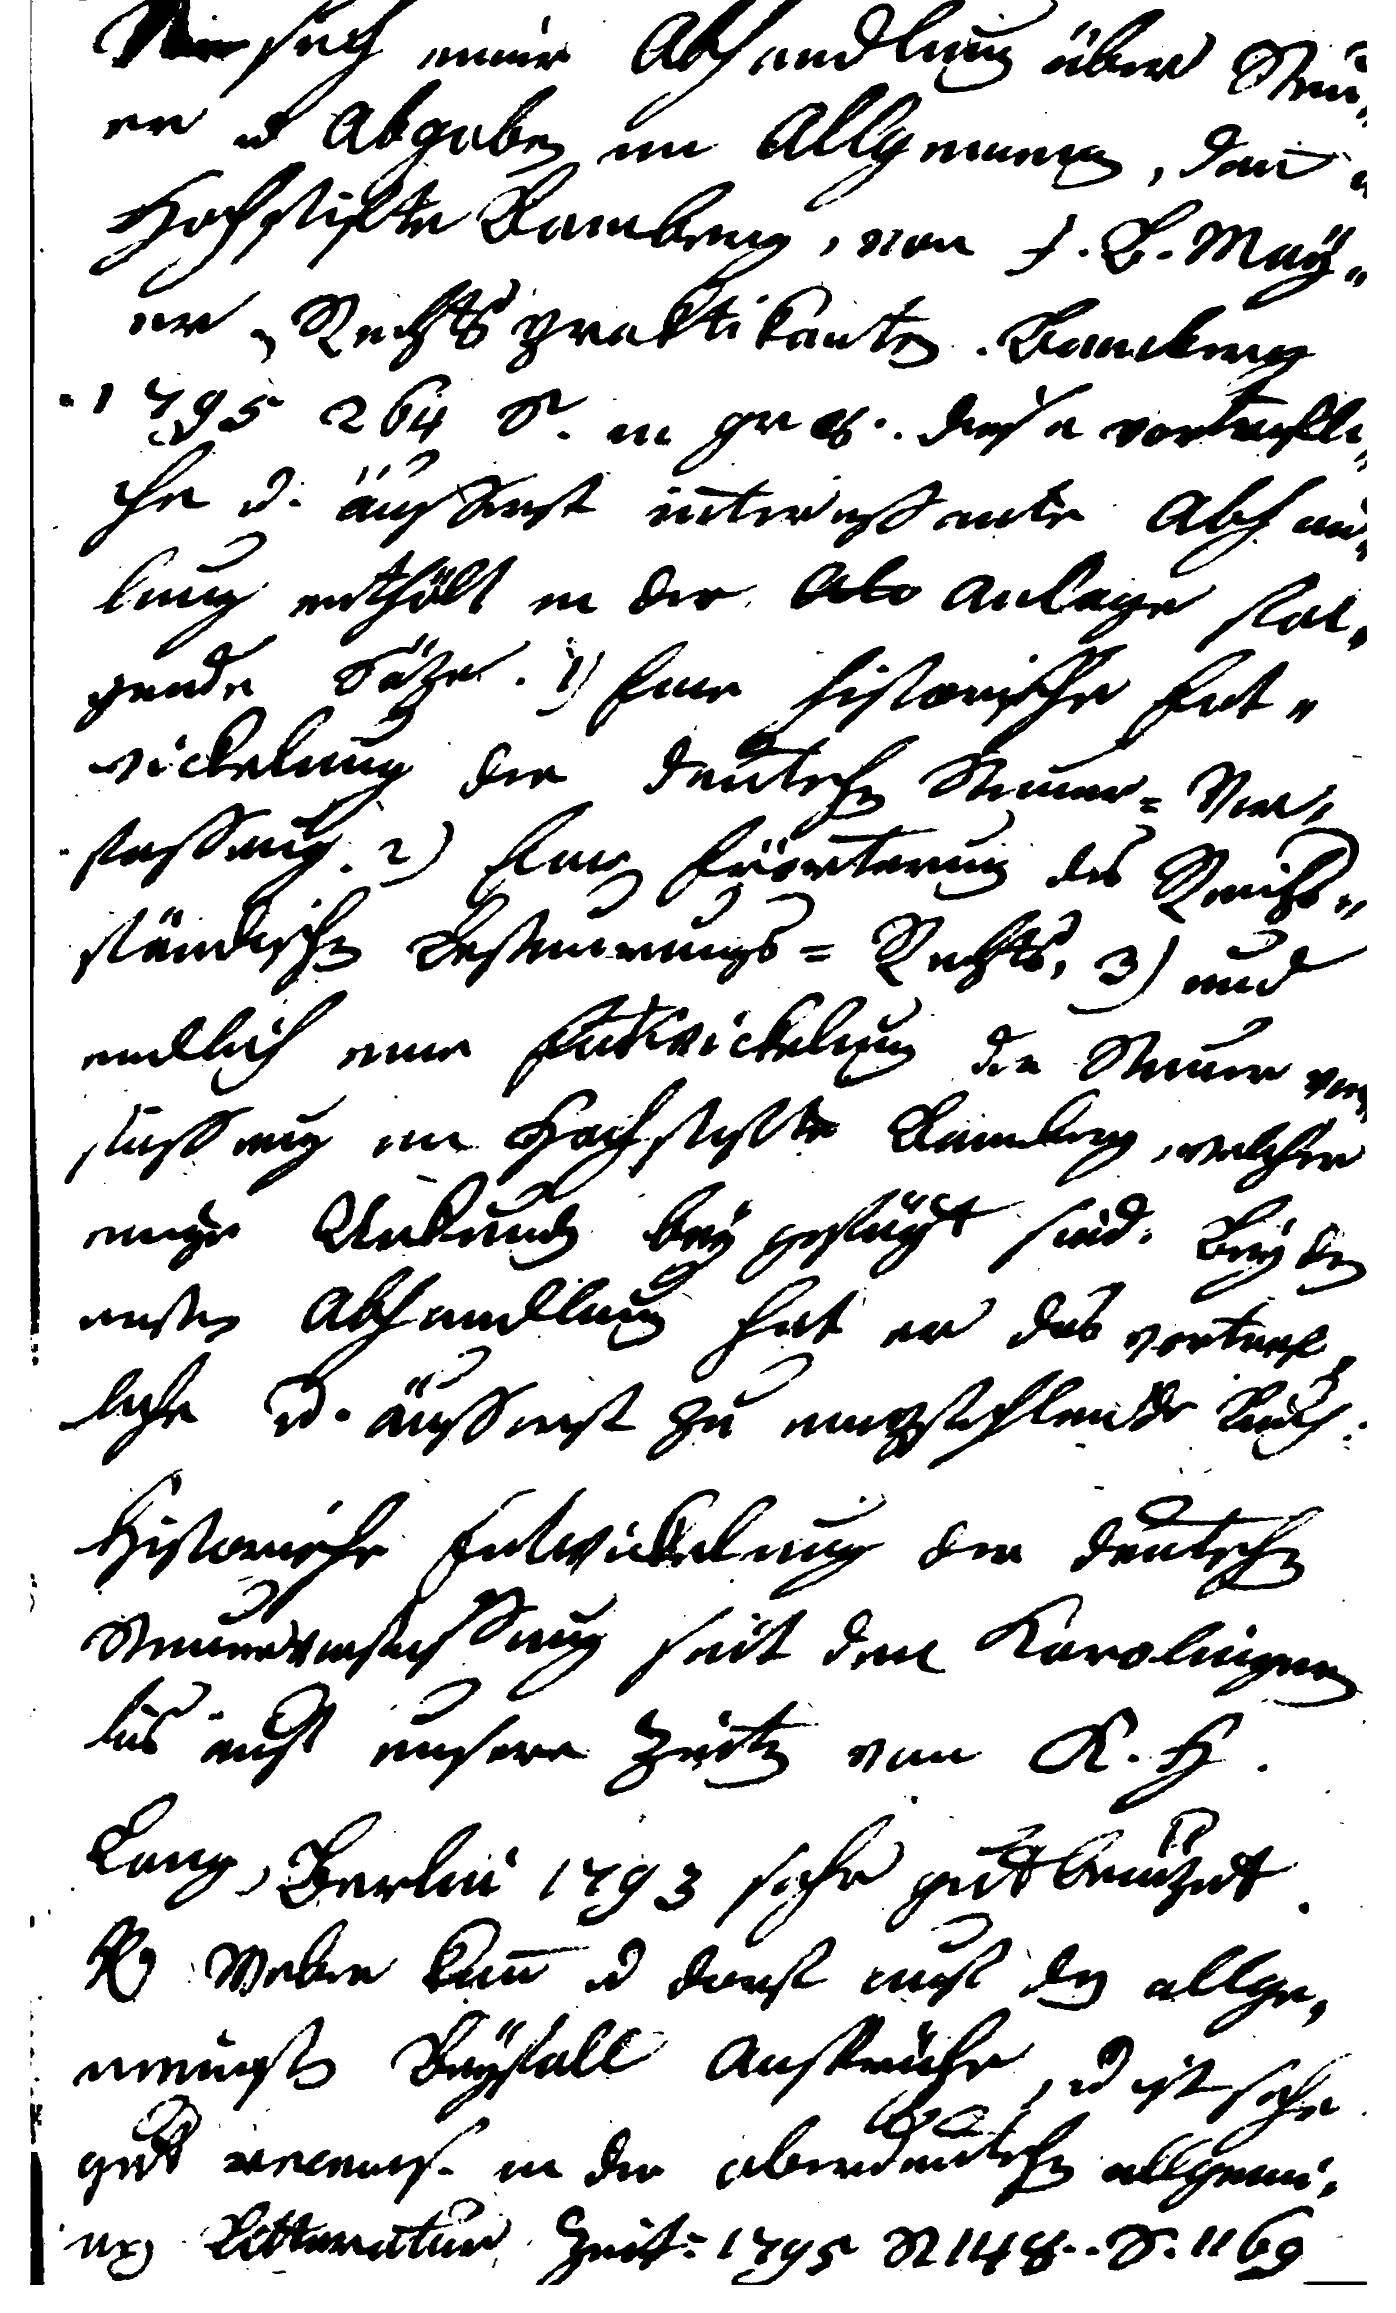 Versuch einer Abhandlung über Steu„
er u Abgaben im Allgemeinen, dan
Hochstifte Bamberg, von J. B. May„
er, Rechtspraktikanten. Bamberg
1795 264 S. in gr 8. diese vortrefli„
che u. äusserst interessante Abhan„
lung enthält in der Anlage fol„
gende Säze. 1) Eine historische Ent„
wickelung der deutschen Steuer=Ver„
fassung. 2) Eine Erörterung des Reichs„
ständischen Besteurungs=Rechts, 3) und
endlich eine Entwickelung der Steuer ver„
fassung im Hochstifte Bamberg, welcher
einige Urkunden beygefügt sind. Bey der
ersten Abhandlung hat er das vortref„
liche u. äusserst zu empfehlende Buch:
Historische Entwickelung der deutschen
Steuerverfassung seit den Karolingern
bis auf unsere Zeiten von K. H.
Lang, Berlin 1793 sehr gut benüzet.
H Weber kann u darf auf den allge„
meinsten Beyfall Ansprüche, u ist sehr
gut recens. in der oberdeutschen allgemei„
nen Litteratur Zeit: 1795 N 148.. S. 1169